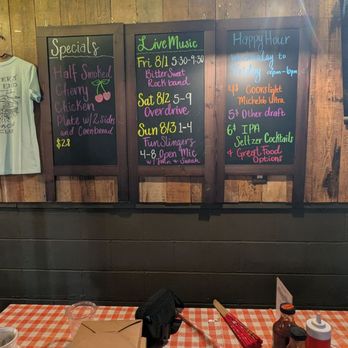 Specials
Half Smoked
Cherry
Chicken
Plate w/2 sides
and Cornbread
$28
Live Music
Fri 8/1 5:30-9:30
BitterSweet
Rock band
Sat 8/2 5-9
Overdrive
Sun 8/3 1-4
Fun Slingers
4-8 Open Mic
w/ John & Sarah
Happy Hour
to
4$ Coors light
Michelob Ultra
5$ Other draft
6$ IPA
Seltzer Cocktails
& Great Food
Options